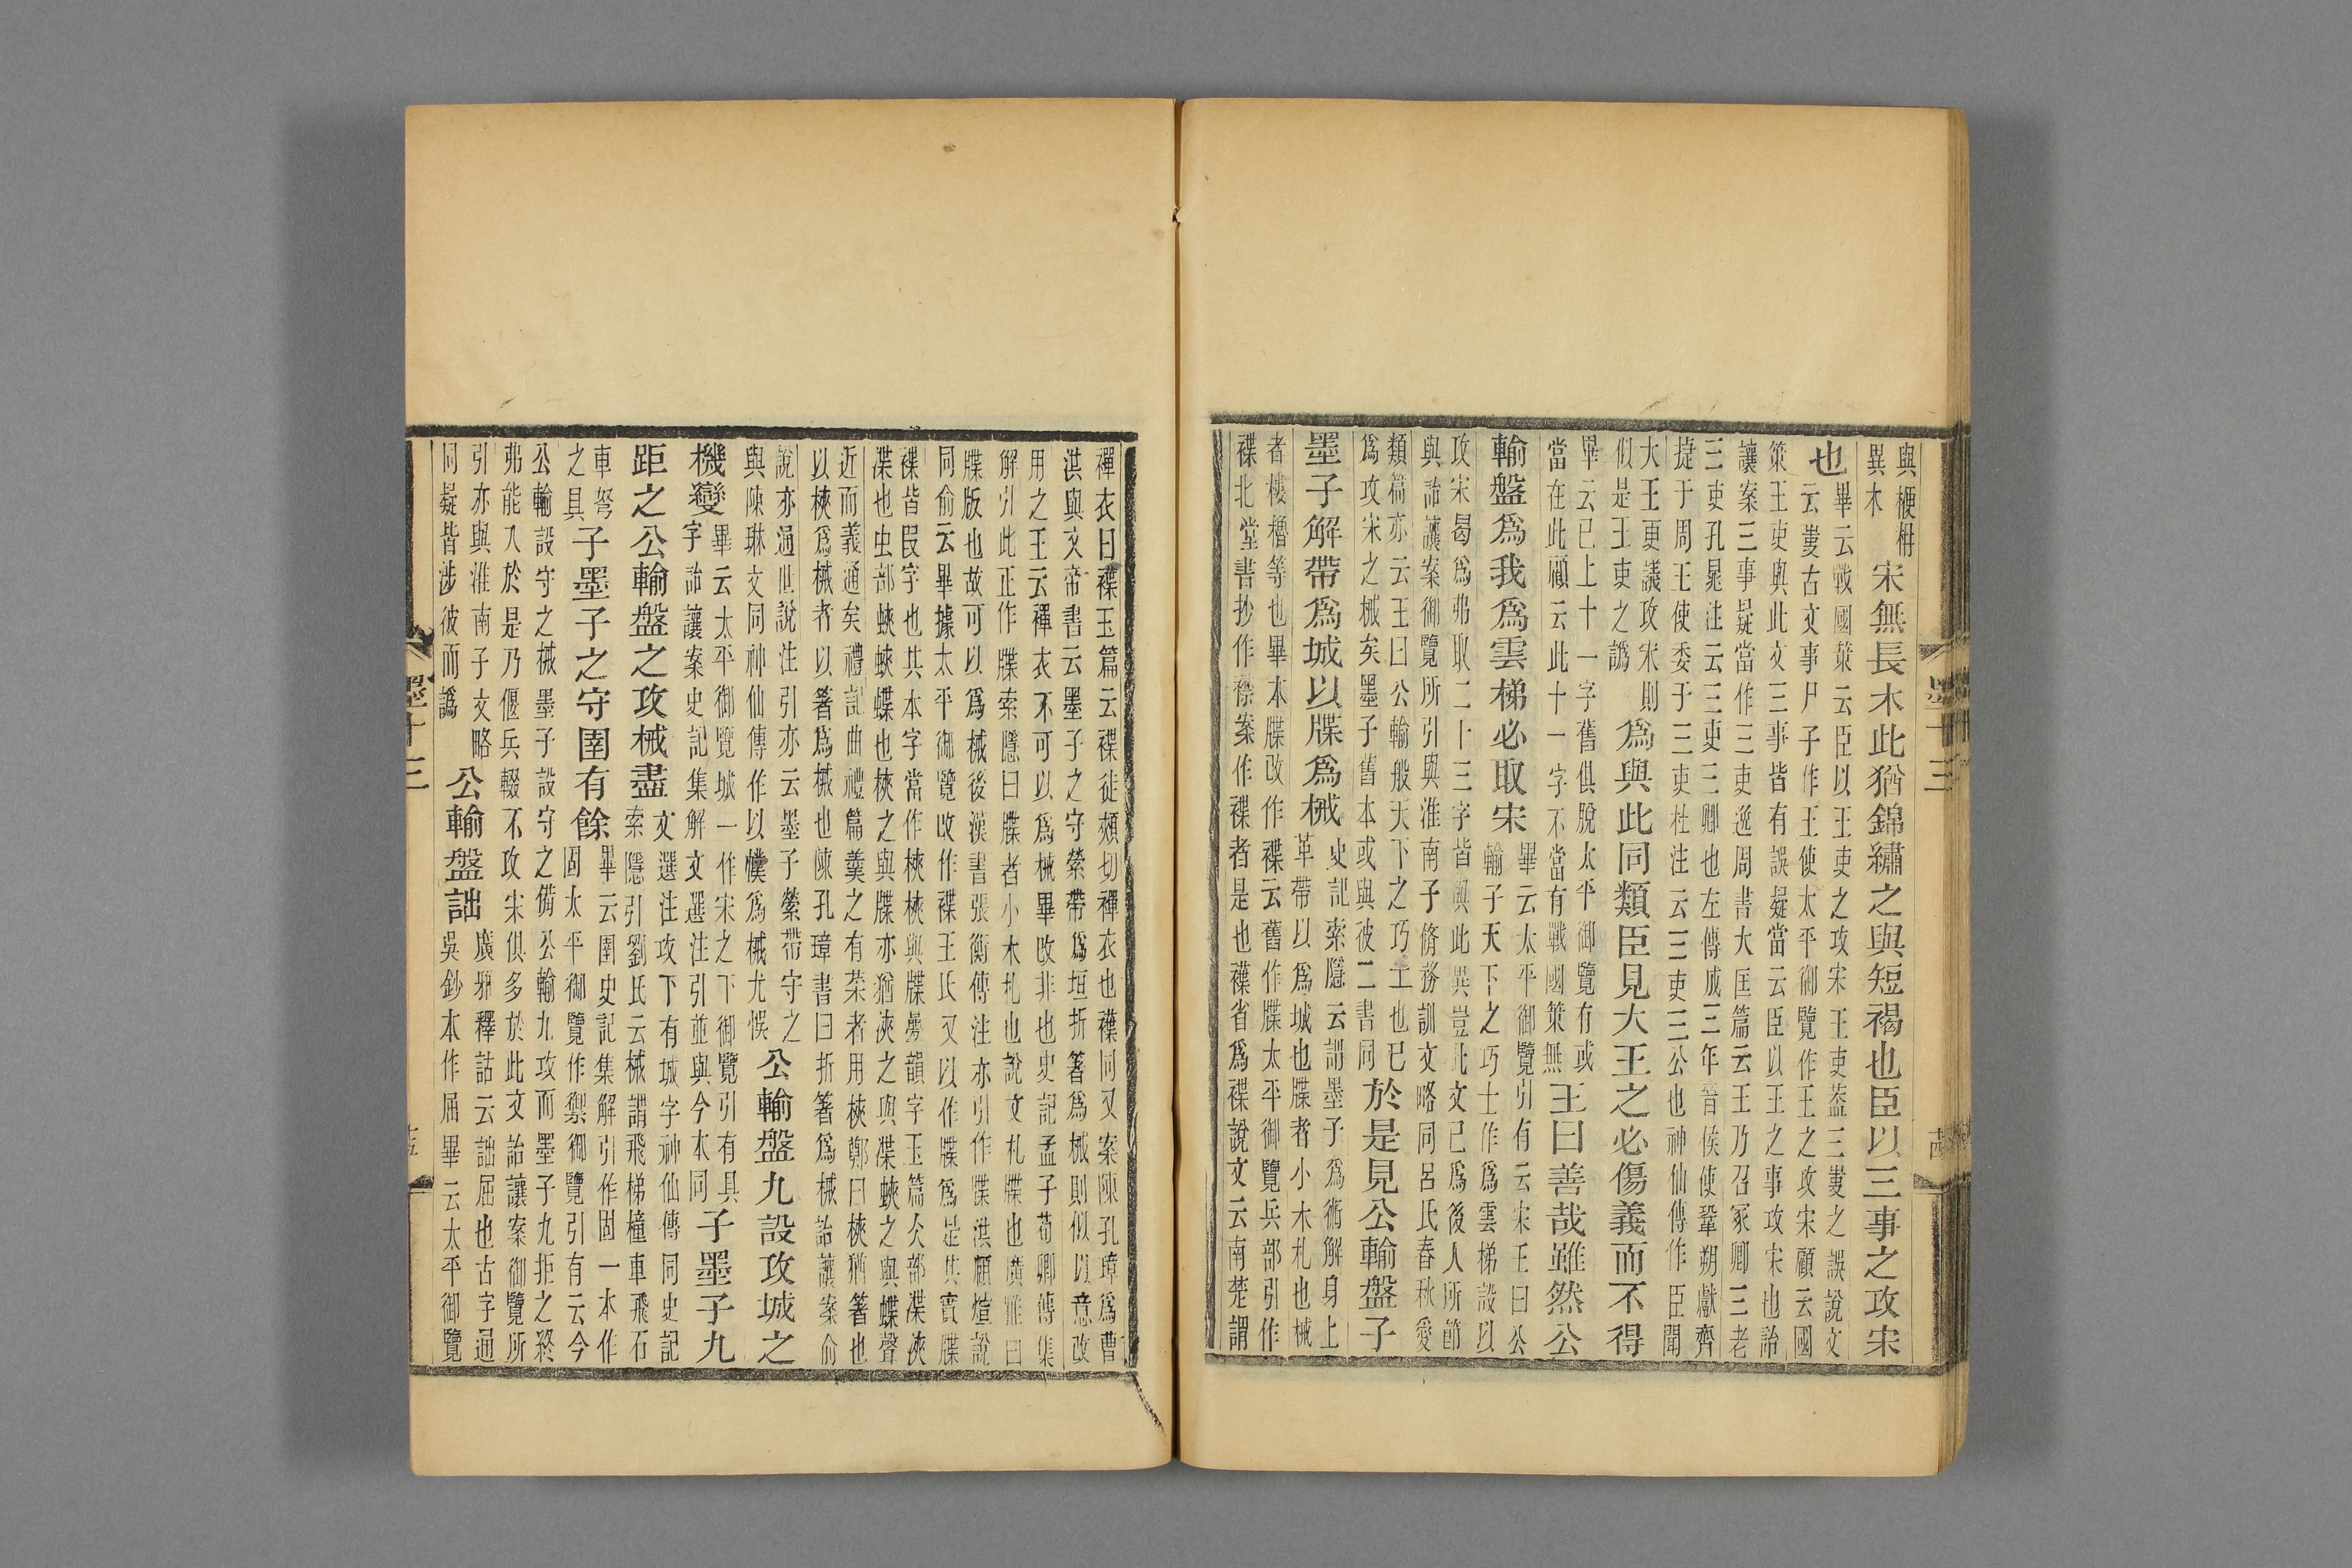 與楩柟
異木
宋無長木此猶錦繡之與短褐也臣以三事之攻宋
也
畢云戰國策云臣以王吏之攻宋王吏蓋三㕜之誤說文
云㕜古文事尸子作王使太平御覽作王之攻宋顧云國
策王吏與此文三事皆有誤疑當云臣以王之事攻宋也詒
讓案三事疑當作三吏逸周書大匡篇云王乃召冢卿三老
三吏孔晁注云三吏三卿也左傳成三年晉侯使鞏朔獻齊
捷于周王使委于三吏杜注云三吏三公也神仙傳作臣聞
大王更議攻宋則
似是王吏之譌
爲與此同類臣見大王之必傷義而不得
畢云已上十一字舊俱脫太平御覽有或
當在此顧云此十一字不當有戰國策無
王曰善哉雖然公
輸盤爲我爲雲梯必取宋
畢云太平御覽引有云宋王曰公
輸子天下之巧士作爲雲梯設以
攻宋曷爲弗取二十三字皆與此異豈此文已爲後人所節
與詒讓案御覽所引與淮南子脩務訓文略同呂氏春秋愛
類篇亦云王曰公輸般天下之巧工也已
爲攻宋之械矣墨子舊本或與彼二書同
於是見公輸盤子
墨子解帶爲城以牒爲械
史記索隱云謂墨子爲術解身上
革帶以爲城也牒者小木札也械
者樓櫓等也畢本牒改作褋云舊作牒太平御覽兵部引作
褋北堂書抄作襟案作褋者是也䙝省爲褋說文云南楚謂
襌衣曰褋玉篇云褋徒頰切襌衣也䙝同又案陳孔璋爲曹
洪與文帝書云墨子之守縈帶爲垣折箸爲械則似以意改
用之王云襌衣不可以爲械畢改非也史記孟子荀卿傳集
解引此正作牒索隱曰牒者小木札也說文札牒也廣雅曰
牒版也故可以爲械後漢書張衡傳注亦引作牒洪頤煊說
同俞云畢據太平御覽改作褋王氏又以作牒爲是其實牒
褋皆叚字也其本字當作梜梜與牒疊韻字玉篇仌部渫浹
渫也虫部蛺蛺蝶也梜之與牒亦猶浹之與渫蛺之與蝶聲
近而義通矣禮記曲禮篇羹之有菜者用梜鄭曰梜猶箸也
以梜爲械者以箸爲械也陳孔璋書曰折箸爲械詒讓案俞
說亦通世說注引亦云墨子縈帶守之
與陳琳文同神仙傳作以㡤爲械尤悞
公輸盤九設攻城之
機變
畢云太平御覽城一作宋之下御覽引有具
字詒讓案史記集解文選注引並與今本同
子墨子九
距之公輸盤之攻械盡
文選注攻下有城字神仙傳同史記
索隱引劉氏云械謂飛梯橦車飛石
車弩
之具
子墨子之守圉有餘
畢云圉史記集解引作固一本作
固太平御覽作禦御覽引有云今
公輸設守之械墨子設守之備公輸九攻而墨子九拒之終
弗能入於是乃偃兵輟不攻宋俱多於此文詒讓案御覽所
引亦與淮南子文略
同疑皆涉彼而譌
公輸盤詘
廣雅釋詁云詘屈也古字通
吳鈔本作屈畢云太平御覽
墨十三
墨十三